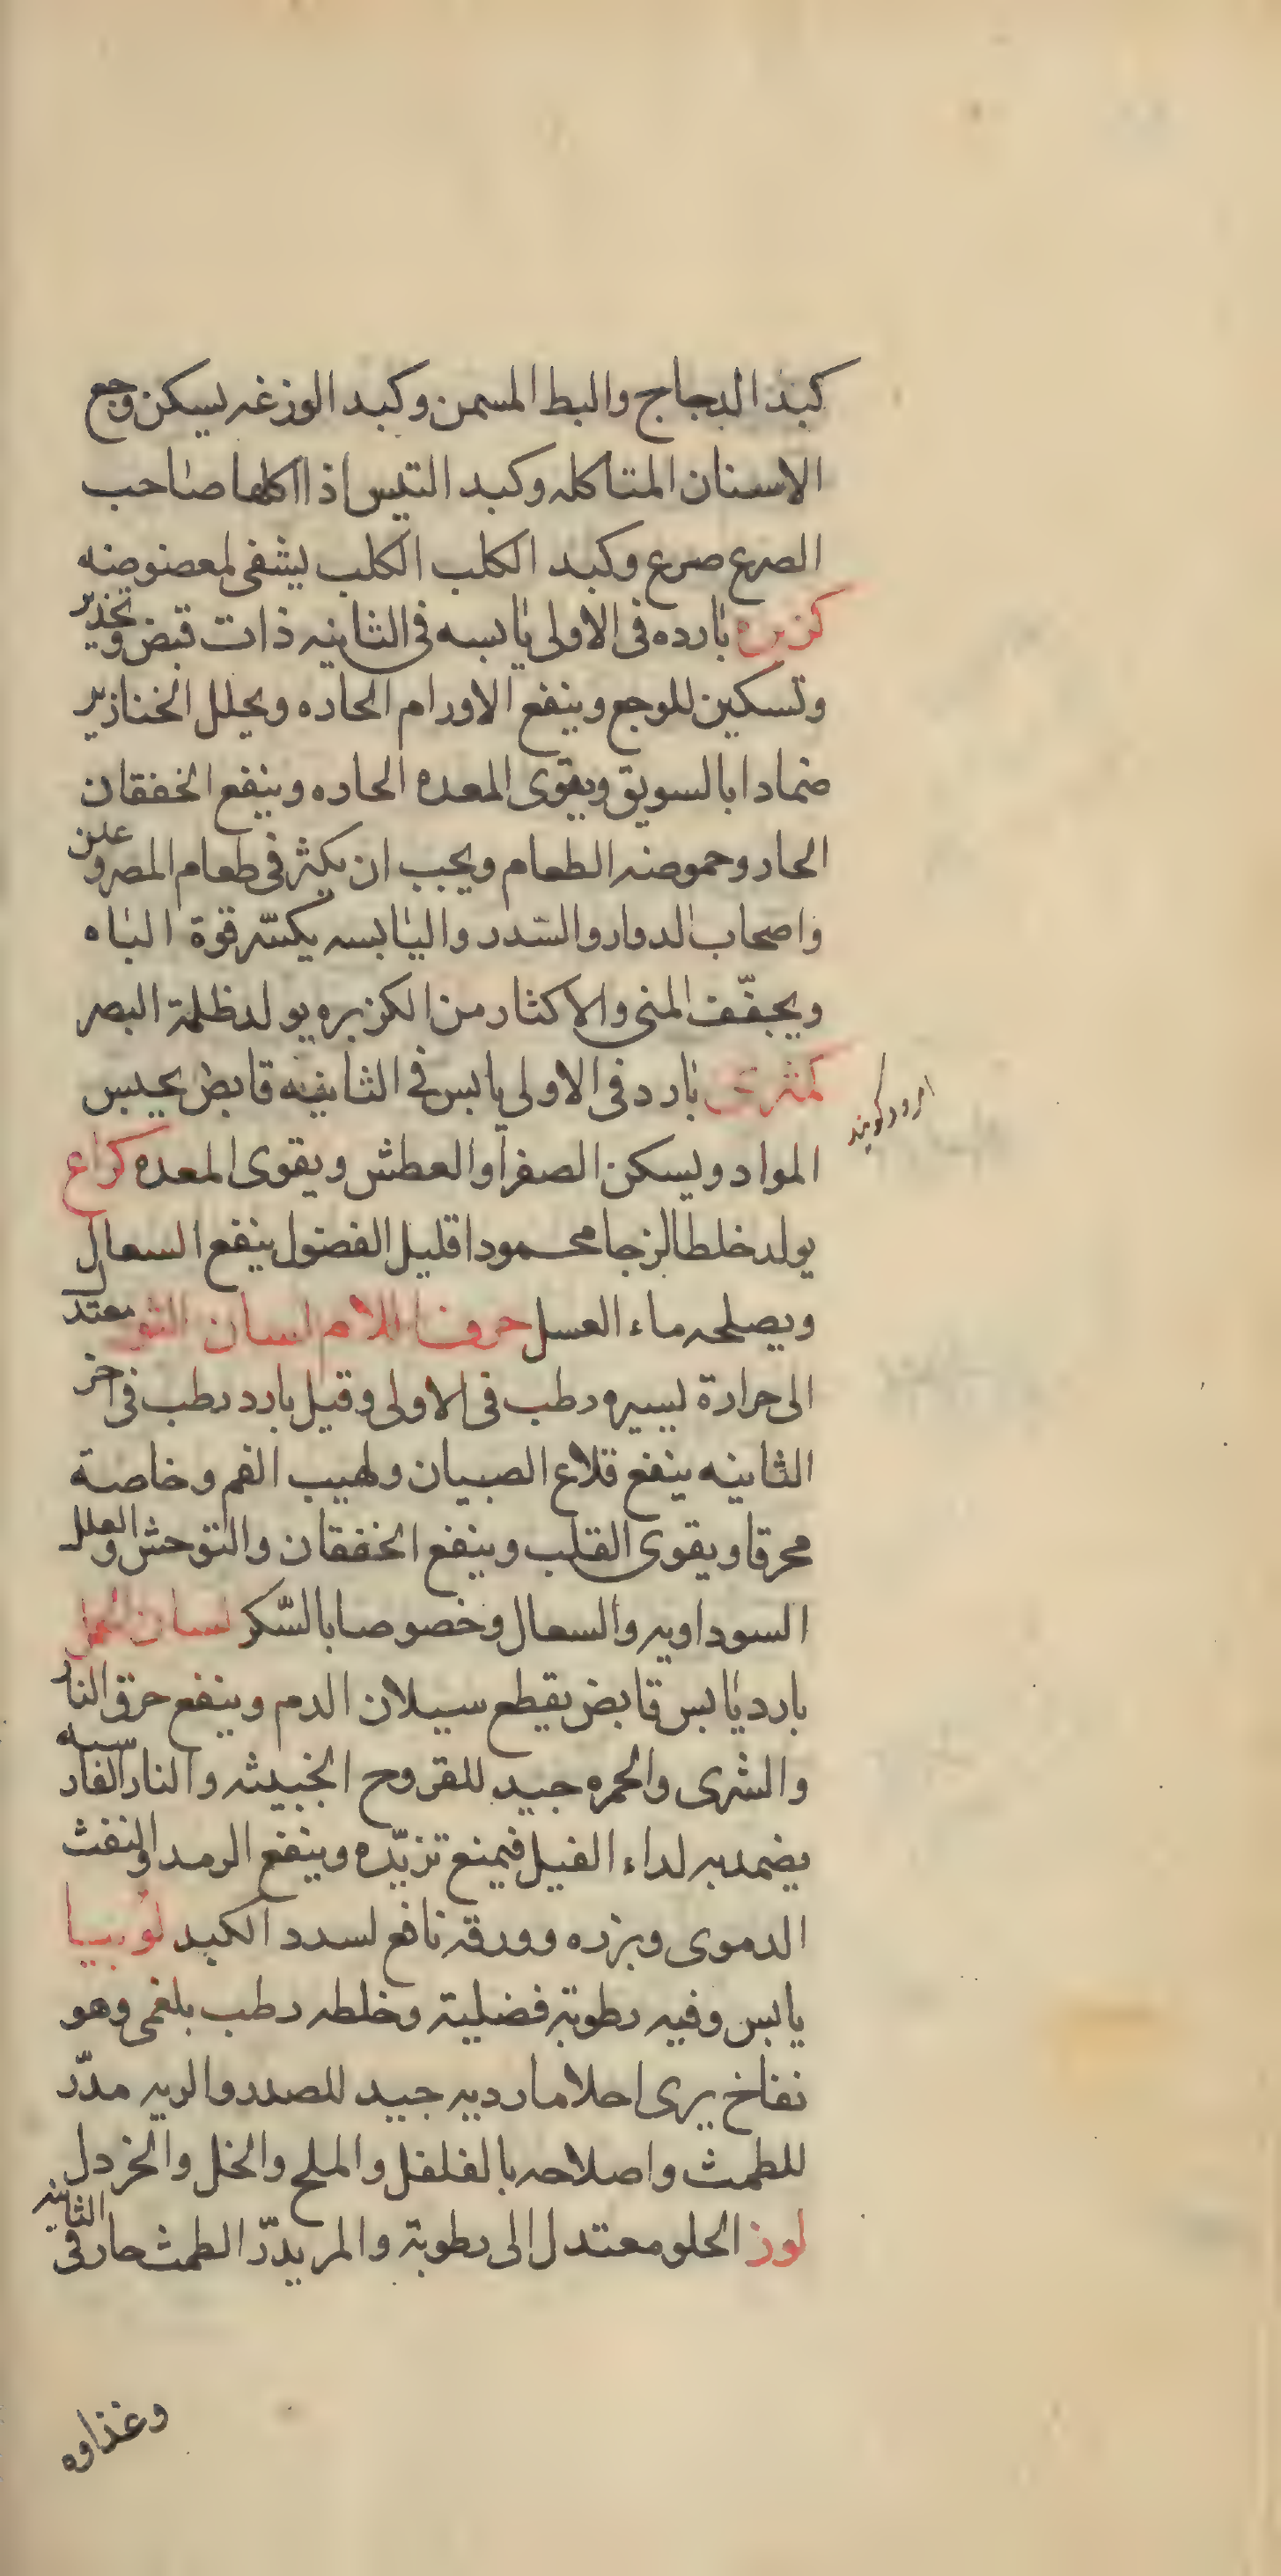 كبد الدجاج والبط المسمن وكبد الوزغه يسكن وجع
الاسنان المتاكله وكبد التيس اذا اكلها صاحب
الصرع صرع وكبد الكلب الكلب يشفى لمعضوضه
كزبره بارده فى الاولى يابسه فى الثانيه ذات قبض وتخدير
وتسكين للوجع وينفع الاورام الحاره ويحلل الخنازير
ضمادا بالسويق ويقوى المعده الحاره وينفع الخفقان
الحار وحموضه الطعام ويجب ان يكثر فى طعام المصروعين
واصحاب الدوار والسّدد واليابسه يكسّر قوة الباه
ويجفّف المنى والاكثار من الكزبره يولد ظلمة البصر
كمثرى بارد فى الاولى يابس فى الثانيه قابض يحبس
امرود كويند
المواد ويسكن الصفرا والعطش ويقوى المعده كراع
يولد خلطا لزجا محمودا قليل الفضول ينفع السعال
ويصلحه ماء العسل حرف اللام لسان الثور معتدل
الى حرارة يسيره رطب فى الاولى وقيل بارد رطب فى اخر
الثانيه ينفع قلاع الصبيان ولهيب الفم وخاصة
محرقا ويقوى القلب وينفع الخفقان والتوحش والعلل
السوداويه والسعال وخصوصا بالسّكر لسان الحمل
بارد يابس قابض يقطع سيلان الدم وينفع حرق النار
والشرى والحمره جيد للقروح الخبيثه والنار الفارسيه
يضمد به لداء الفيل فيمنع تزيّده وينفع الرمد والنفث
الدموى وبزره وورقه نافع لسدد الكبد لوبيا
يابس وفيه رطوبة فضلية وخلطه رطب بلغمى وهو
نفاخ يرى احلاما رديه جيد للصدر والريه مدّر
للطمث واصلاحه بالفلفل والملح والخل والخردل
لوز الحلو معتدل الى رطوبة والمر يدرّ الطمث حار فى الثانيه
وغذاوه